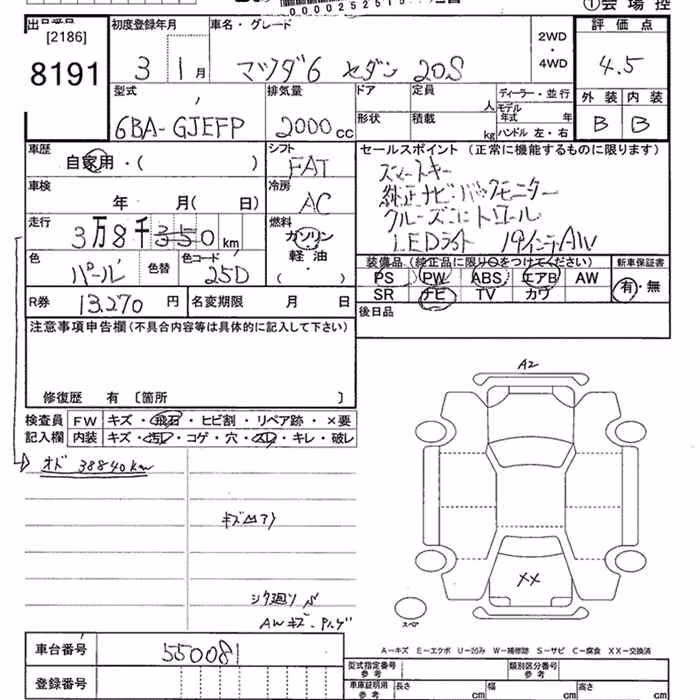 ①会場控
出品番号 初度登録年月 車名・グレード 評価点
[2186] 2WD
8191 3 1月 マツダ6 セダン 20S ・4WD 4.5
型式 排気量 ドア 定員 ディーラー・並行 外装 内装
人 モデル年式 年
6BA-GJEFP 2000cc 形状 積載 kg ハンドル 左・右 B B
車歴 シフト セールスポイント (正常に機能するものに限ります)
自家用・( ) FAT スマートキー
車検 冷房 純正ナビ・バックモニター
年 月( 日) AC クルーズコントロール
走行 燃料 LEDライト 19インチAW
3万8千350km ガソリン
色 色替 色コード 軽油 装備品 (純正品に限り○をつけてください) 新車保証書
パール 25D ・( ) PS PW ABS エアB AW 有・無
R券 13,270円 名変期限 月 日 SR ナビ TV カワ
注意事項申告欄(不具合内容等は具体的に記入して下さい) 後日品
修復歴 有 〔箇所 〕
A2
検査員 FW キズ・飛石・ヒビ割・リペア跡・×要
記入欄 内装 キズ・汚レ・コゲ・穴・スレ・キレ・破レ
オド 38840km
キズ凹アリ
XX
シタ廻リ
AWキズ・ハゲ
スペア
A-キズ E-エクボ U-凹み W-補修跡 S-サビ C-腐食 XX-交換済
車台番号 550081
型式指定番号 参考 類別区分番号 参考
登録番号 車庫証明用 参考 長さ cm 幅 cm 高さ cm